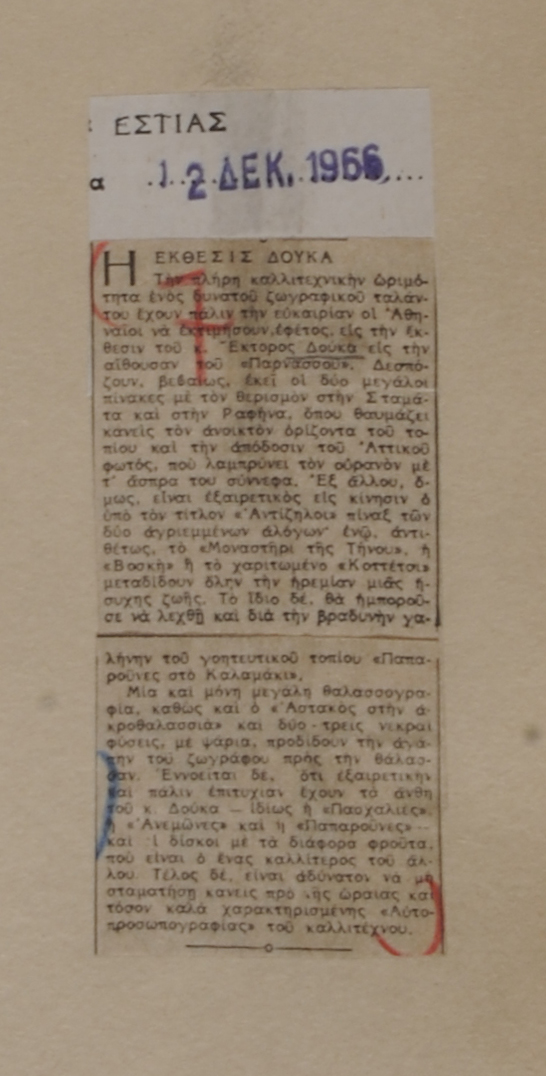 ΕΣΤΙΑΣ
α 12 ΔΕΚ. 1966
Η ΕΚΘΕΣΙΣ ΔΟΥΚΑ
Τὴν πλήρη καλλιτεχνικὴν ὡριμό-
τητα ἑνὸς δυνατοῦ ζωγραφικοῦ ταλάν-
του ἔχουν πάλιν τὴν εὐκαιρίαν οἱ Ἀθη-
ναῖοι νὰ ἐκτιμήσουν, ἐφέτος, εἰς τὴν ἔκ-
θεσιν τοῦ κ. Ἕκτορος Δούκα εἰς τὴν
αἴθουσαν τοῦ «Παρνασσοῦ». Δεσπό-
ζουν, βεβαίως, ἐκεῖ οἱ δύο μεγάλοι
πίνακες μὲ τὸν θερισμὸν στὴν Σταμά-
τα καὶ στὴν Ραφήνα, ὅπου θαυμάζει
κανεὶς τὸν ἀνοικτὸν ὁρίζοντα τοῦ το-
πίου καὶ τὴν ἀπόδοσιν τοῦ Ἀττικοῦ
φωτός, ποὺ λαμπρύνει τὸν οὐρανὸν μὲ
τ' ἄσπρα του σύννεφα. Ἐξ ἄλλου, ὅ-
μως, εἶναι ἐξαιρετικὸς εἰς κίνησιν ὁ
ὑπὸ τὸν τίτλον «Ἀντίζηλοι» πίναξ τῶν
δύο ἀγριεμμένων ἀλόγων· ἐνῷ, ἀντι-
θέτως, τὸ «Μοναστήρι τῆς Τήνου», ἡ
«Βοσκὴ» ἢ τὸ χαριτωμένο «Κοττέτσι»
μεταδίδουν ὅλην τὴν ἠρεμίαν μιᾶς ἥ-
συχης ζωῆς. Τὸ ἴδιο δέ, θὰ ἠμποροῦ-
σε νὰ λεχθῇ καὶ διὰ τὴν βραδυνὴν γα-
λήνην τοῦ γοητευτικοῦ τοπίου «Παπα-
ροῦνες στὸ Καλαμάκι».
Μία καὶ μόνη μεγάλη θαλασσογρα-
φία, καθὼς καὶ ὁ «Ἀστακὸς στὴν ἀ-
κροθαλασσιὰ» καὶ δύο - τρεῖς νεκραὶ
φύσεις, μὲ ψάρια, προδίδουν τὴν ἀγά-
πην τοῦ ζωγράφου πρὸς τὴν θάλασ-
σαν. Ἐννοεῖται δέ, ὅτι ἐξαιρετικὴν
καὶ πάλιν ἐπιτυχίαν ἔχουν τὰ ἄνθη
τοῦ κ. Δούκα — ἰδίως ἡ «Πασχαλιές»,
ἡ «Ἀνεμῶνες» καὶ ἡ «Παπαροῦνες» —
καὶ οἱ δίσκοι μὲ τὰ διάφορα φροῦτα,
ποὺ εἶναι ὁ ἕνας καλλίτερος τοῦ ἄλ-
λου. Τέλος δέ, εἶναι ἀδύνατον νὰ μὴ
σταματήσῃ κανεὶς πρὸ τῆς ὡραίας καὶ
τόσον καλὰ χαρακτηρισμένης «Αὐτο-
προσωπογραφίας» τοῦ καλλιτέχνου.